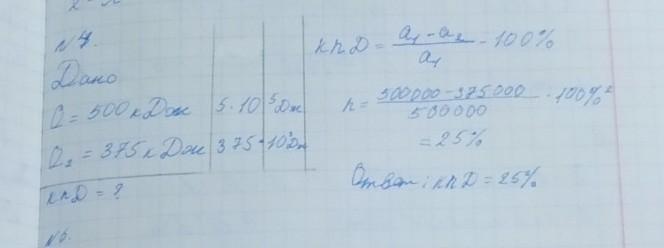 N4.
Дано
Q = 500 кДж 5·10⁵Дж
Q₂ = 375 кДж 375·10³Дж
КПД = ?
КПД = (Q₁ - Q₂)/Q₁ · 100%
n = (500000 - 375000)/500000 · 100% =
= 25%
Ответ: КПД = 25%
N5.